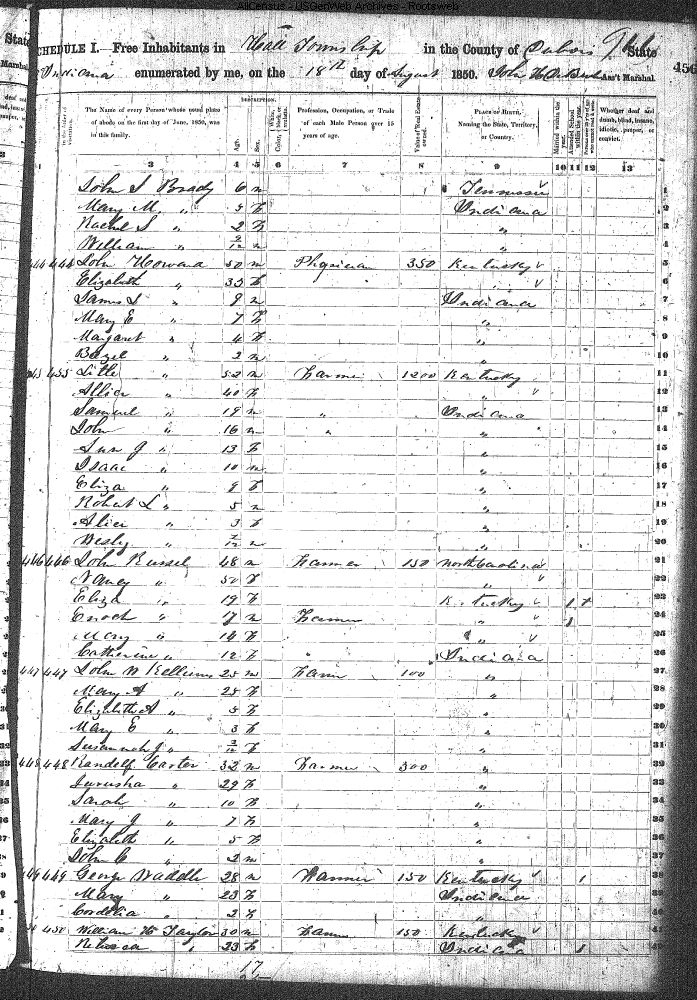 AllCensus - USGenWeb Archives - Rootsweb
SCHEDULE I.- Free Inhabitants in Hall Township in the County of Dubois State
Indiana enumerated by me, on the 18th day of August 1850. Ass't Marshal 456
DESCRIPTION.
The Name of every Person whose usual place of abode on the first day of June, 1850, was in this family.
Age. Sex.
Profession, Occupation, or Trade of each Male Person over 15 years of age.
Value of Real Estate owned.
PLACE OF BIRTH, Naming the State, Territory, or Country.
Married within the year.
Attended School within the year.
Whether deaf and dumb, blind, insane, idiotic, pauper, or convict.
3 4 5 6 7 8 9 10 11 12 13
John S Brady 6 m Tennessee 1
Mary M. " 5 f Indiana 2
Rachel S " 2 f " 3
William " m " 4
444 444 John Howard 50 m Physician 350 Kentucky 5
Elizabeth " 35 f " 6
James L " 9 m Indiana 7
Mary E " 7 f " 8
Margaret " 4 f " 9
Bazel " 2 m " 10
455 Litle " 52 m Farmer 1200 Kentucky 11
Allice " 40 f " 12
Samuel " 19 m " Indiana 13
John " 16 m " " 14
" 13 f " 15
Isaac " 10 m " 16
Eliza " 9 f " 17
Robert L " 5 m " 18
Alice " 3 f " 19
Wesly " m " 20
446 446 John Russel 48 m Farmer 150 North Carolina 21
Nancy " 50 f " 22
Eliza " 19 f Kentucky 1 23
Enoch " 17 m Farmer " 1 24
Mary " 14 f " 25
Catherine " 12 f Indiana 26
447 447 John W Kellums 25 m Farmer 100 " 27
Mary A " 25 f " 28
Elizabeth A " 5 f "
Mary E " 3 f "
Susannah J " f "
448 448 Randolf Carter 32 m Farmer 300 "
Jurusha " 29 f "
Sarah " 10 f "
Mary J " 7 f "
Elizabeth " 5 f "
John C " 2 m "
449 449 George Waddle 28 m Farmer 150 Kentucky 1
Mary " 23 f Indiana
Cordelia " 2 f "
450 William H Taylor 30 m Farmer 150 Kentucky
Rebecca " 23 f Indiana 1
17